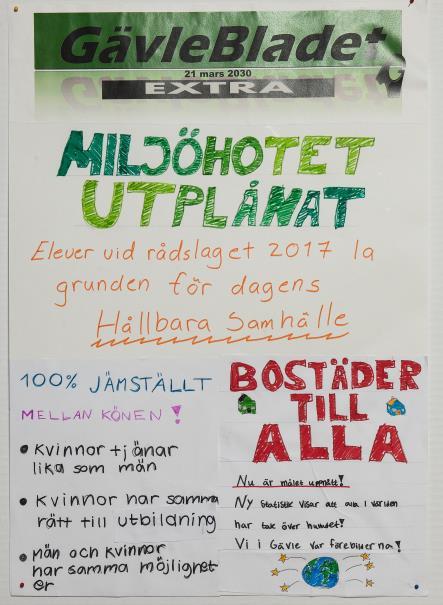 GävleBladet
21 mars 2030
EXTRA
MILJÖHOTET
UTPLÅNAT
Elever vid rådslaget 2017 la
grunden för dagens
Hållbara Samhälle
100% JÄMSTÄLLT
MELLAN KÖNEN!
• Kvinnor tjänar
lika som män
• Kvinnor har samma
rätt till utbildning
• män och kvinnor
har samma möjlighet
er
BOSTÄDER
TILL
ALLA
Nu är målet uppnått!
Ny statistik visar att alla i världen
har tak över huvudet!
Vi i Gävle var förebilderna!